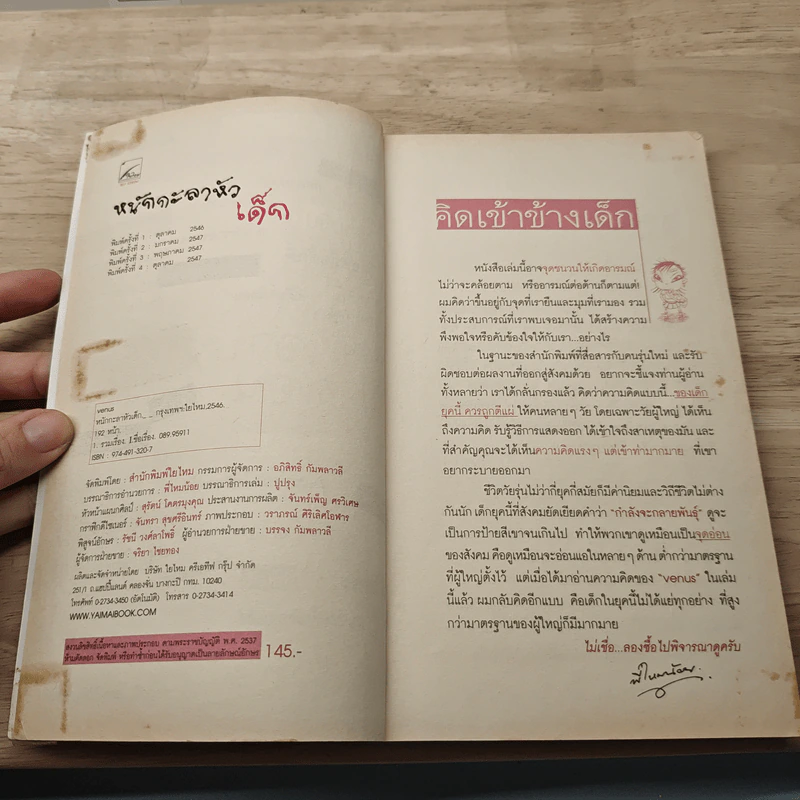 หนักกะลาหัว
เด็ก
พิมพ์ครั้งที่ 1 : ตุลาคม 2546
พิมพ์ครั้งที่ 2 : มกราคม 2547
พิมพ์ครั้งที่ 3 : พฤษภาคม 2547
พิมพ์ครั้งที่ 4 : ตุลาคม 2547
venus
หนักกะลาหัวเด็ก._ _ กรุงเทพฯ:ใยไหม,2546.
192 หน้า.
1. รวมเรื่อง. I.ชื่อเรื่อง. 089.95911
ISBN : 974-491-320-7
จัดพิมพ์โดย : สำนักพิมพ์ใยไหม กรรมการผู้จัดการ : อภิสิทธิ์ กัมพลาวลี
บรรณาธิการอำนวยการ : พี่ไหมน้อย บรรณาธิการเล่ม : ปูปรุง
หัวหน้าแผนกศิลป์ : สุรัตน์ โคตรมุงคุณ ประสานงานการผลิต : จันทร์เพ็ญ ศรวิเศษ
กราฟิกดีไซเนอร์ : จันทรา สุขศรีอินทร์ ภาพประกอบ : วราภรณ์ ศิริเลิศโอฬาร
พิสูจน์อักษร : รัชนี วงศ์ลาโพธิ์ ผู้อำนวยการฝ่ายขาย : บรรจง กัมพลาวลี
ผู้จัดการฝ่ายขาย : จริยา ไชยทอง
ผลิตและจัดจำหน่ายโดย บริษัท ใยไหม ครีเอทีฟ กรุ๊ป จำกัด
251/1 ถ.แฮปปี้แลนด์ คลองจั่น บางกะปิ กทม. 10240
โทรศัพท์ 0-2734-3450 (อัตโนมัติ) โทรสาร 0-2734-3414
WWW.YAIMAIBOOK.COM
สงวนลิขสิทธิ์เนื้อหาและภาพประกอบ ตามพระราชบัญญัติ พ.ศ. 2537
ห้ามคัดลอก จัดพิมพ์ หรือทำซ้ำก่อนได้รับอนุญาตเป็นลายลักษณ์อักษร
145.-
คิดเข้าข้างเด็ก
หนังสือเล่มนี้อาจจุดชนวนให้เกิดอารมณ์
ไม่ว่าจะคล้อยตาม หรืออารมณ์ต่อต้านก็ตามแต่!
ผมคิดว่าขึ้นอยู่กับจุดที่เรายืนและมุมที่เรามอง รวม
ทั้งประสบการณ์ที่เราพบเจอมานั้น ได้สร้างความ
พึงพอใจหรือคับข้องใจให้กับเรา...อย่างไร
ในฐานะของสำนักพิมพ์ที่สื่อสารกับคนรุ่นใหม่ และรับ
ผิดชอบต่อผลงานที่ออกสู่สังคมด้วย อยากจะชี้แจงท่านผู้อ่าน
ทั้งหลายว่า เราได้กลั่นกรองแล้ว คิดว่าความคิดแบบนี้...ของเด็ก
ยุคนี้ ควรถูกตีแผ่ ให้คนหลายๆ วัย โดยเฉพาะวัยผู้ใหญ่ ได้เห็น
ถึงความคิด รับรู้วิธีการแสดงออก ได้เข้าใจถึงสาเหตุของมัน และ
ที่สำคัญคุณจะได้เห็นความคิดแรงๆ แต่เข้าท่ามากมาย ที่เขา
อยากระบายออกมา
ชีวิตวัยรุ่นไม่ว่ากี่ยุคกี่สมัยก็มีค่านิยมและวิถีชีวิตไม่ต่าง
กันนัก เด็กยุคนี้ที่สังคมยัดเยียดคำว่า "กำลังจะกลายพันธุ์" ดูจะ
เป็นการป้ายสีเขาจนเกินไป ทำให้พวกเขาดูเหมือนเป็นจุดอ่อน
ของสังคม คือดูเหมือนจะอ่อนแอในหลายๆ ด้าน ต่ำกว่ามาตรฐาน
ที่ผู้ใหญ่ตั้งไว้ แต่เมื่อได้มาอ่านความคิดของ "venus" ในเล่ม
นี้แล้ว ผมกลับคิดอีกแบบ คือเด็กในยุคนี้ไม่ได้แย่ทุกอย่าง ที่สูง
กว่ามาตรฐานของผู้ใหญ่ก็มีมากมาย
ไม่เชื่อ...ลองซื้อไปพิจารณาดูครับ
พี่ไหมน้อย.